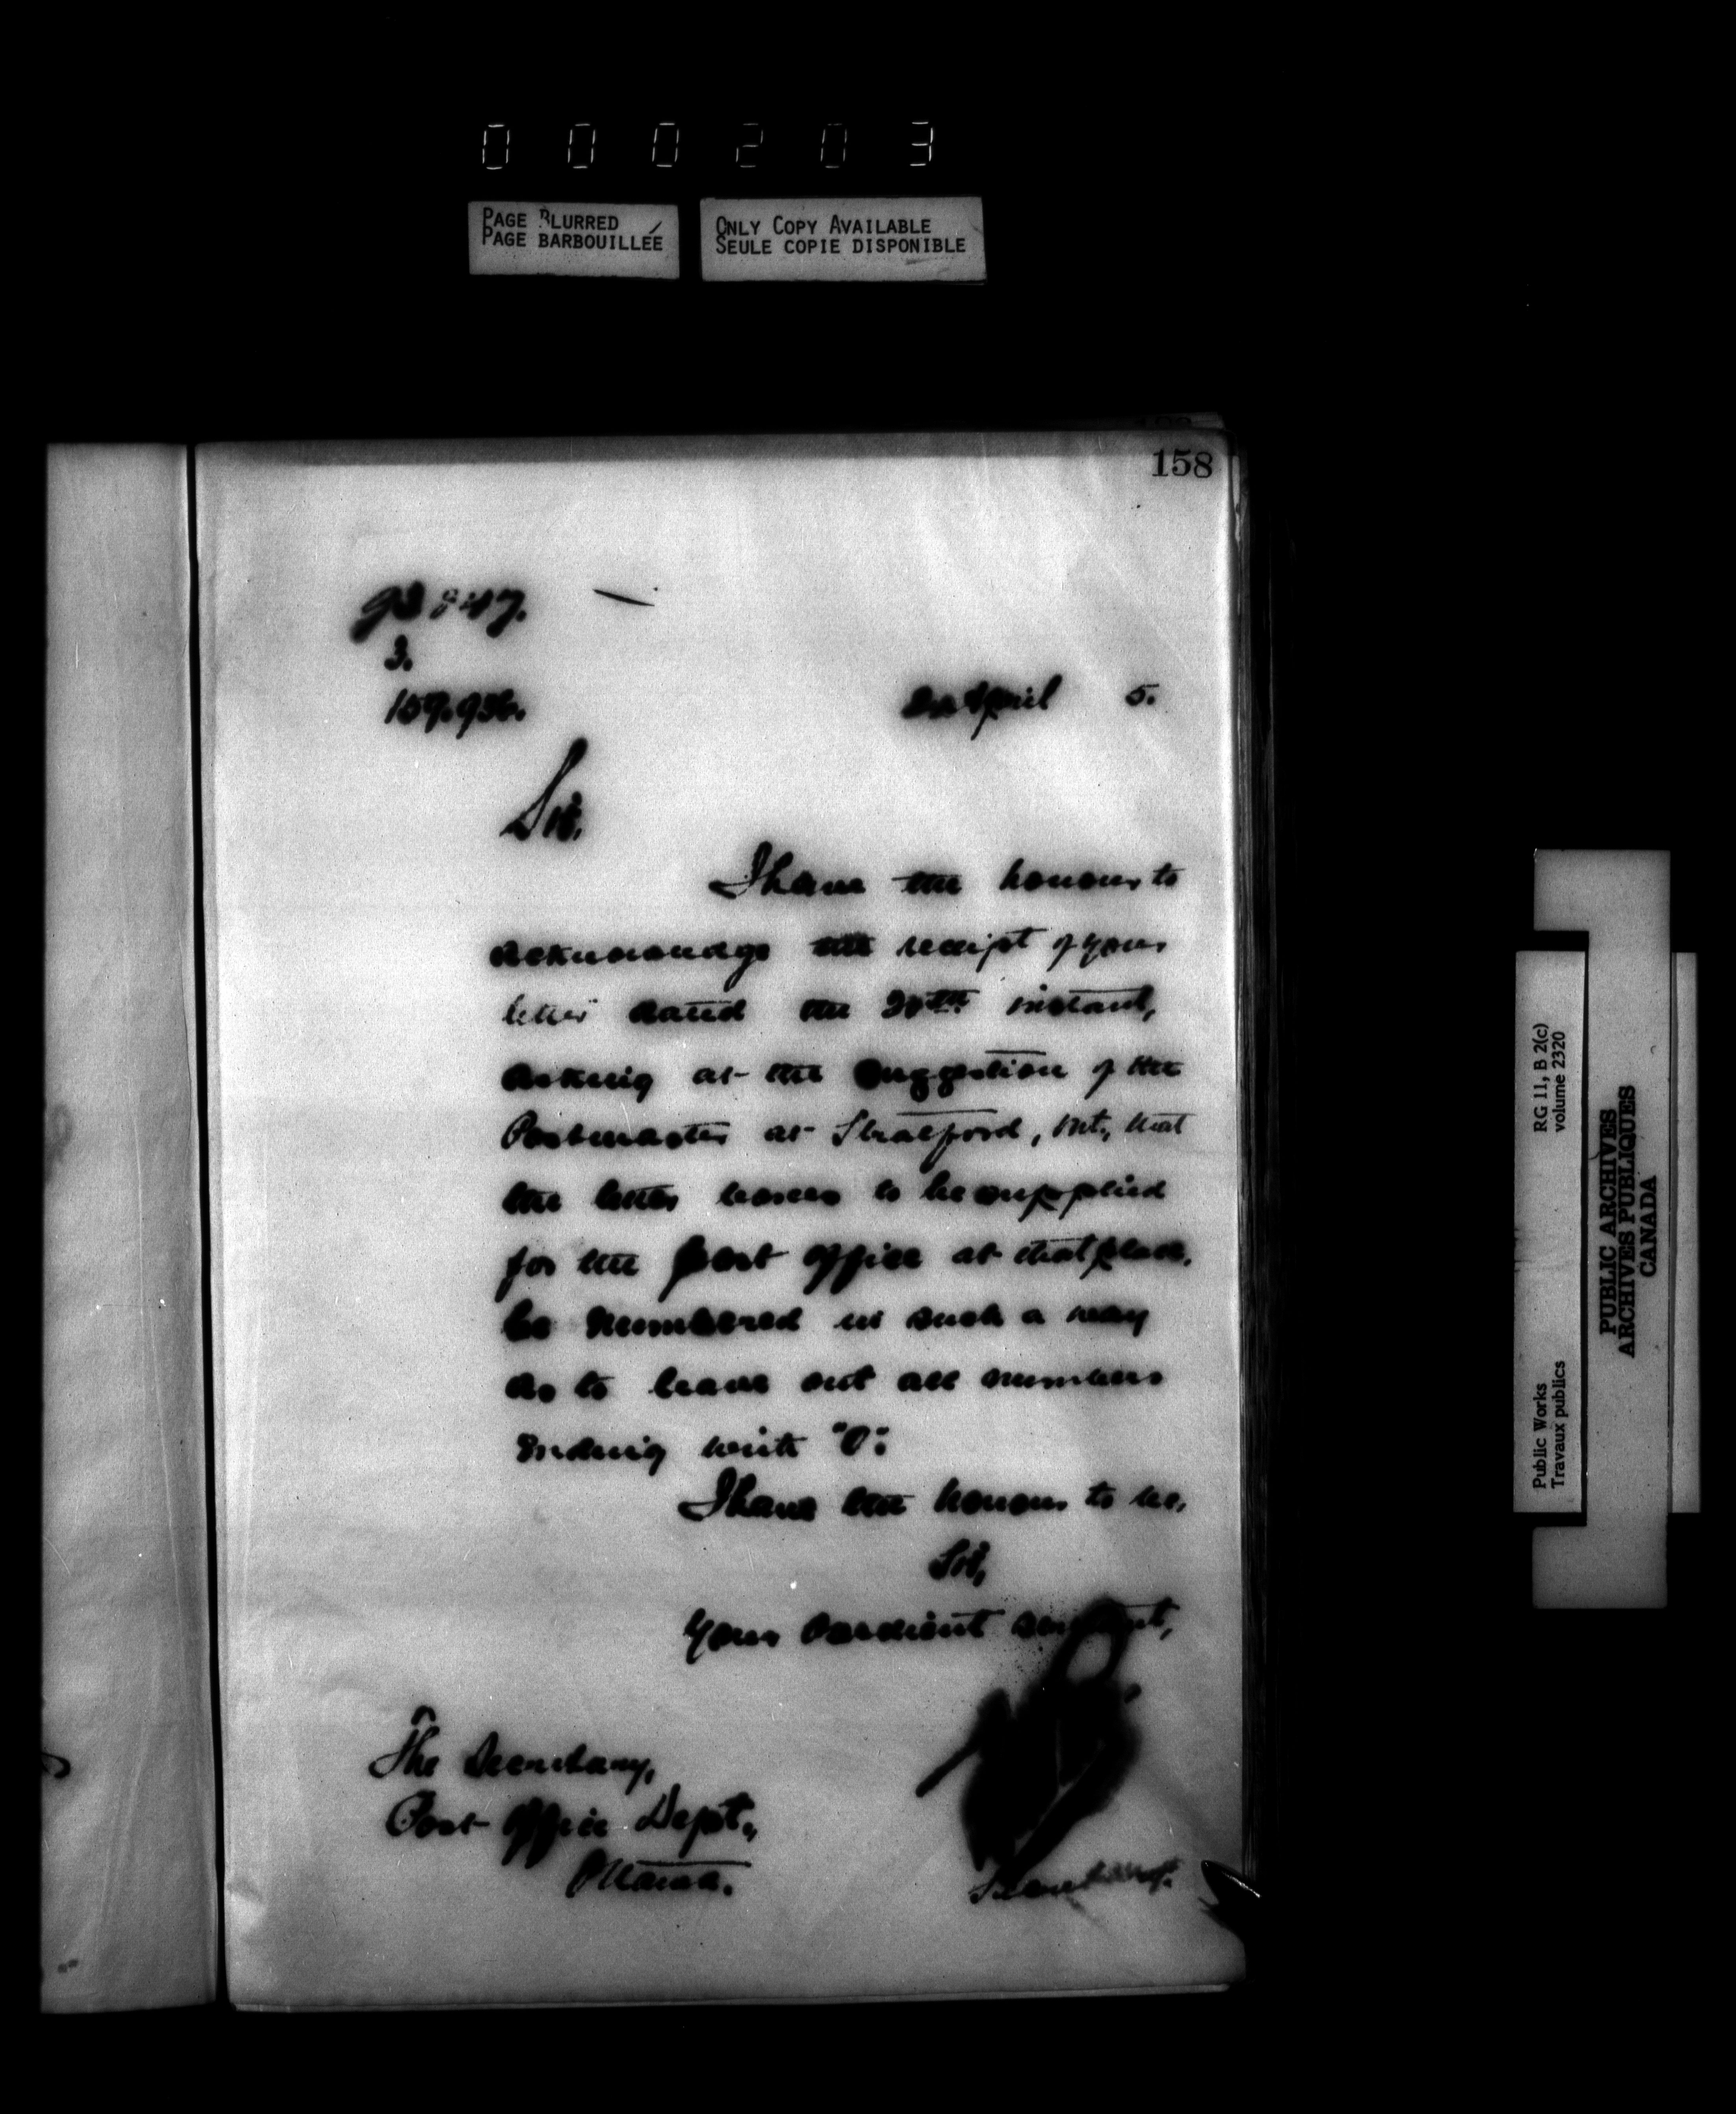 000203
PAGE BLURRED
PAGE BARBOUILLÉE
ONLY COPY AVAILABLE
SEULE COPIE DISPONIBLE
158
3.
159.936.
April 5.
Sir,
I have the honour to
acknowledge the receipt of your
letter dated the 20th instant,
asking at the suggestion of the
Postmaster at Stratford, Ont., that
the letter boxes to be supplied
for the Post Office at that place,
be numbered in such a way
as to leave out all numbers
ending with "0".
I have the honour to be,
Sir,
Your obedient servant,
The Secretary,
Post Office Dept.,
Ottawa.
Secretary.
Public Works
Travaux publics
RG 11, B 2(c)
volume 2320
PUBLIC ARCHIVES
ARCHIVES PUBLIQUES
CANADA